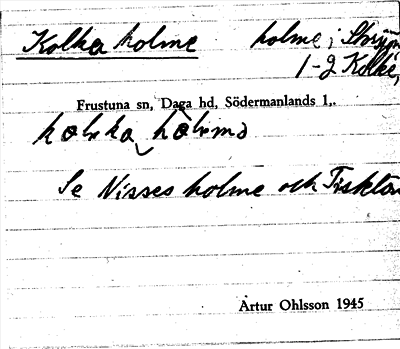 Kolka holme holme i
1-2 Kolke,
Frustuna sn, Daga hd, Södermanlands l,.
Se Nisses holme och
Artur Ohlsson 1945